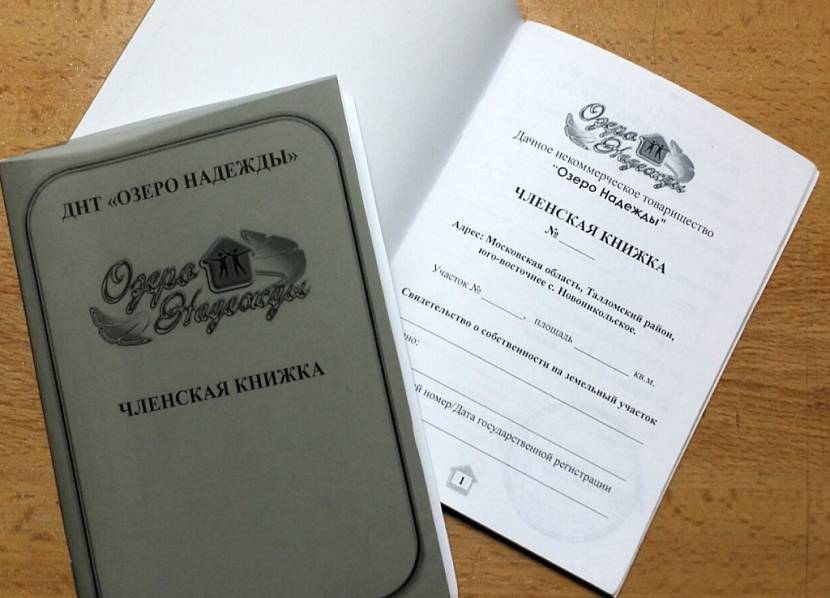 ДНТ «ОЗЕРО НАДЕЖДЫ»
Озеро
Надежды
ЧЛЕНСКАЯ КНИЖКА
Озеро
Надежды
Дачное некоммерческое товарищество
"Озеро Надежды"
ЧЛЕНСКАЯ КНИЖКА
№
Адрес: Московская область, Талдомский район,
юго-восточнее с. Новоникольское.
Участок №______, площадь________ кв.м.
Свидетельство о собственности на земельный участок
но:
й номер/Дата государственной регистрации
1